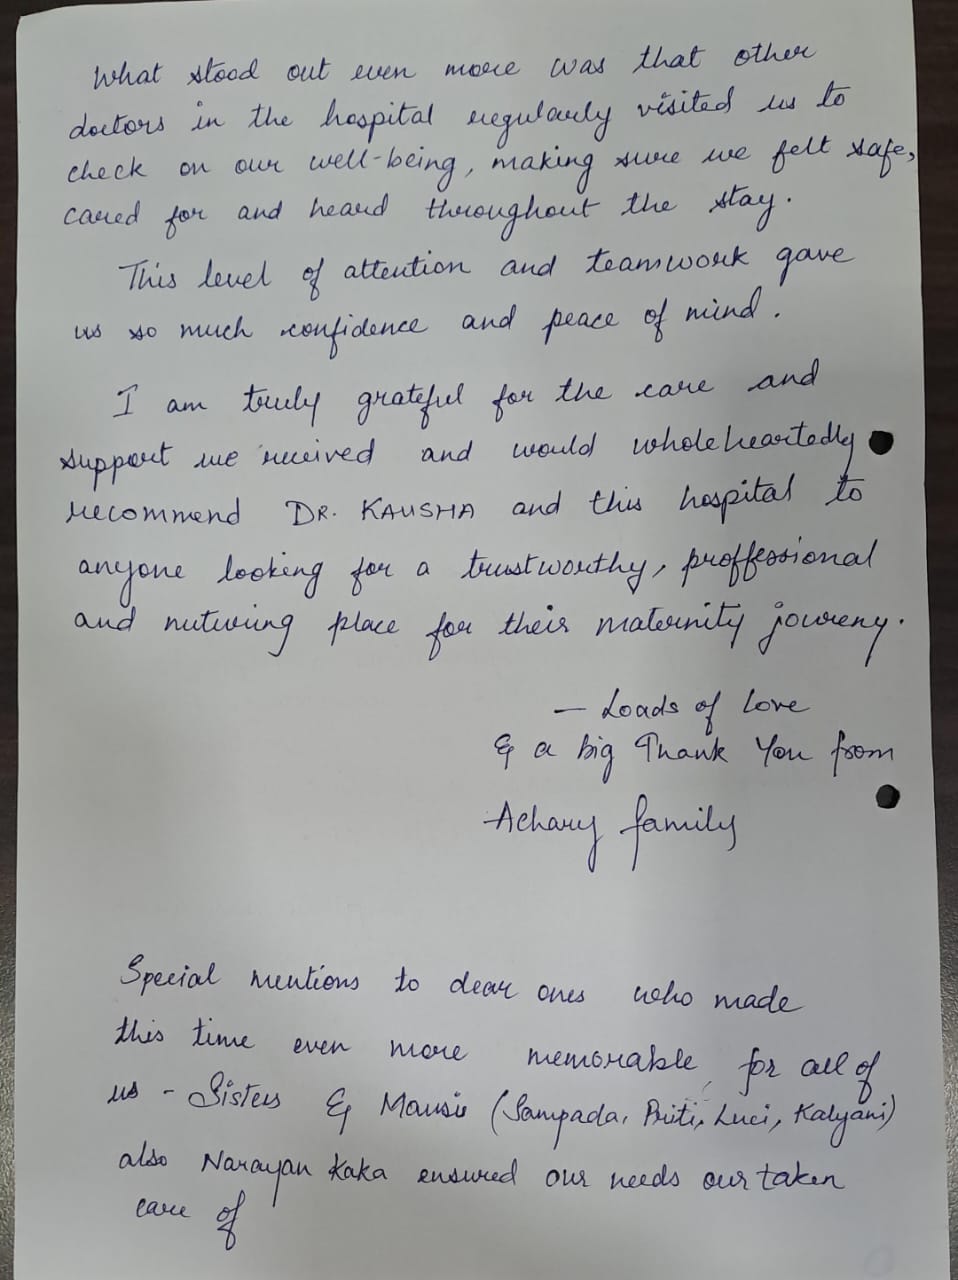 What stood out even more was that other
doctors in the hospital regularly visited us to
check on our well-being, making sure we felt safe,
cared for and heard throughout the stay.
This level of attention and teamwork gave
us so much confidence and peace of mind.
I am truly grateful for the care and
support we received and would wholeheartedly
recommend DR. KAUSHA and this hospital to
anyone looking for a trustworthy, proffessional
and nuturing place for their maternity joureny.
— Loads of love
& a big Thank You from
Achary family
Special mentions to dear ones who made
this time even more memorable for all of
us - Sisters & Mausis (Sampada, Priti, Luci, Kalyani)
also Narayan Kaka ensured our needs our taken
care of